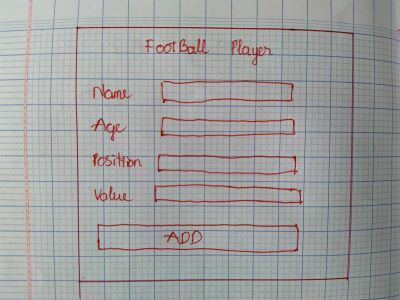 FootBall Player
Name
Age
Position
Value
ADD